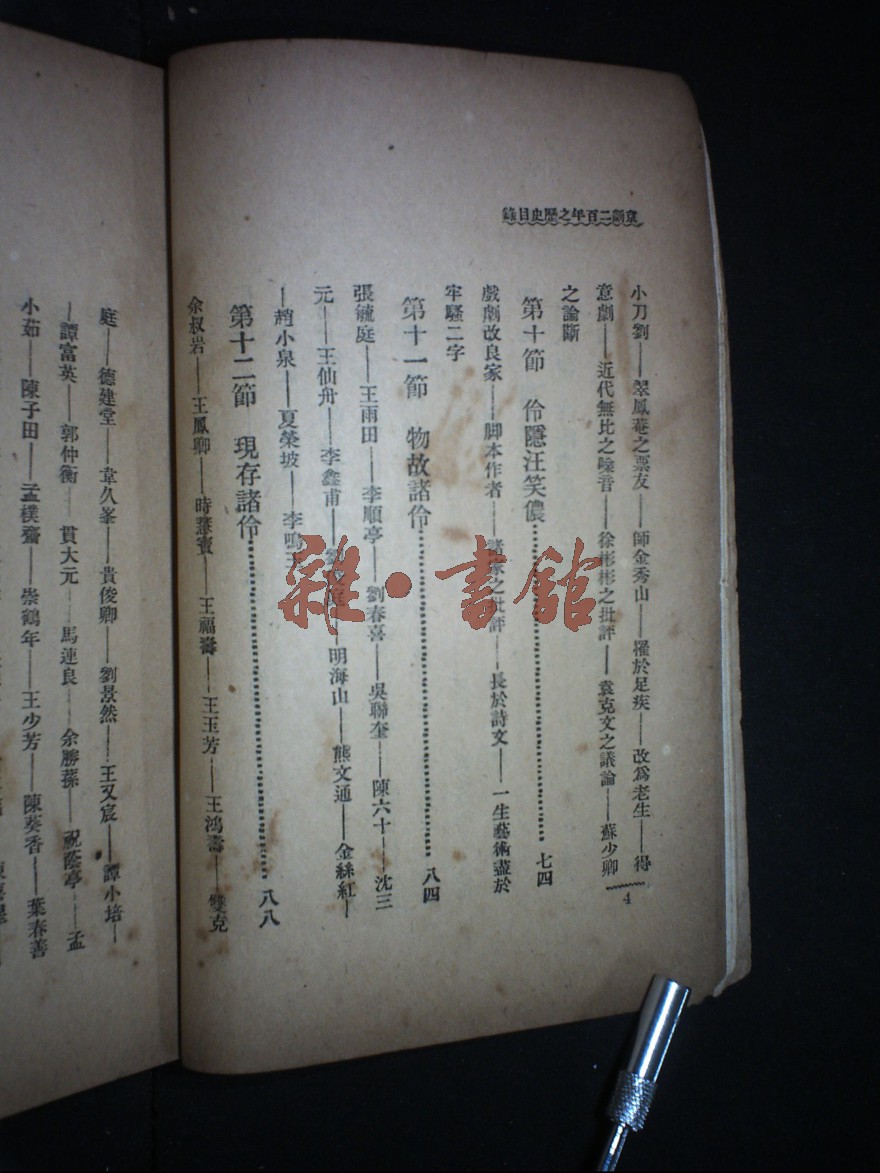 京劇二百年之歷史目錄
小刀劉——翠鳳菴之票友——師金秀山——罹於足疾——改爲老生——得
意劇——近代無比之嗓音——徐彬彬之批評——袁克文之議論——蘇少卿
之論斷
第十節　伶隱汪笑儂………七四
戲劇改良家——脚本作者——諸家之批評——長於詩文——一生藝術盡於
牢騷二字
第十一節　物故諸伶………八四
張毓庭——王雨田——李順亭——劉春喜——吳聯奎——陳六十——沈三
元——王仙舟——李鑫甫——明海山——熊文通——金絲紅—
—趙小泉——夏榮坡——李鳴玉
第十二節　現存諸伶………八八
余叔岩——王鳳卿——時慧寶——王福壽——王玉芳——王鴻壽——雙克
4
庭——德建堂——韋久峯——貴俊卿——劉景然——王又宸——譚小培—
—譚富英——郭仲衡——貫大元——馬連良——余勝蓀——祝蔭亭——孟
小茹——陳子田——孟樸齋——崇鶴年——王少芳——陳葵香——葉春善
雜·書館